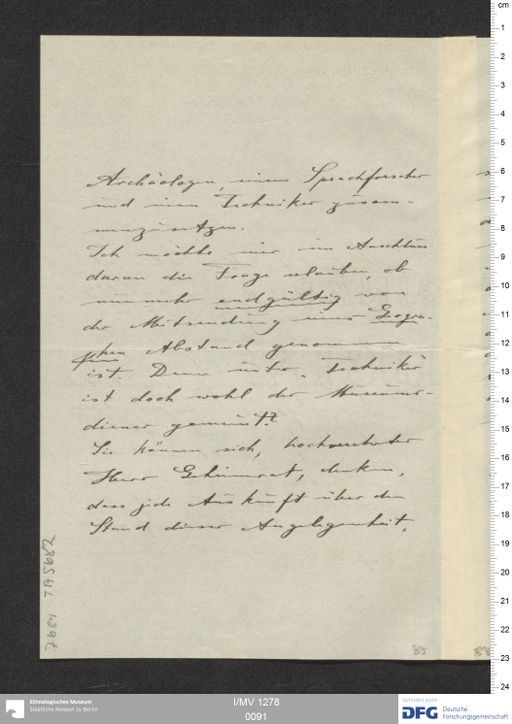 Archäologen, einem Sprachforscher
und einem Techniker zusam-
menzusetzen.
Ich möchte mir im Anschluss
daran die Frage erlauben, ob
nunmehr endgültig von
der Mitsendung eines Geogra-
phen Abstand genommen
ist. Denn unter "Techniker"
ist doch wohl der Museums-
diener gemeint?
Sie können sich, hochverehrter
Herr Geheimrat, denken,
dass jede Auskunft über den
Stand dieser Angelegenheit,
85
88
cm
1
2
3
4
5
6
7
8
9
10
11
12
13
14
15
16
17
18
19
20
21
22
23
24
Ethnologisches Museum
Staatliche Museen zu Berlin
I/MV 1278
0091
Gefördert durch
DFG
Deutsche
Forschungsgemeinschaft